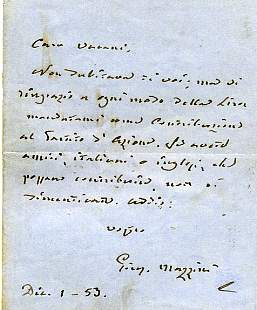 Caro Varani,
Non dubitava di voi; ma vi
ringrazio a ogni modo della Lira
mandatami come Contribuzione
al Partito d'Azione. Se avete
amici, italiani o inglesi, che
possano contribuire, non li
dimenticate. Addio:
vostro
Gius. Mazzini
Dic. 1 - 53.